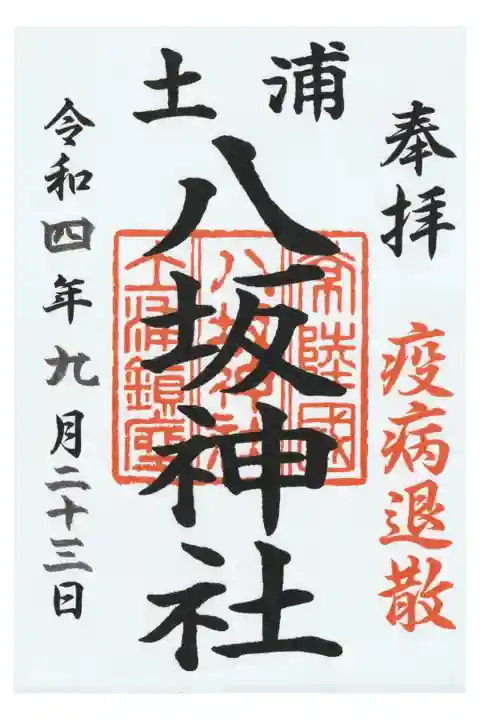 奉拝
疫病退散
土浦
八坂神社
常陸國
八坂神社
土浦鎮座
令和四年九月二十三日